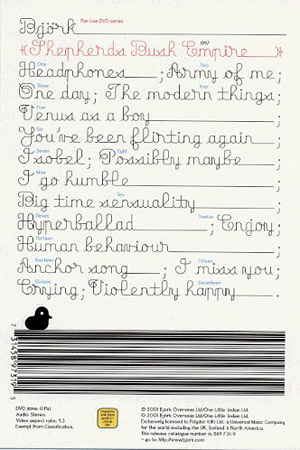 Björk The Live DVD series
Shepherds Bush Empire 1997
Headphones; Two Army of me;
Three One day; Four The modern things;
Five Venus as a boy;
Six You've been flirting again;
Seven Isobel; Eight Possibly maybe;
Nine I go humble;
Ten Big time sensuality;
Eleven Hyperballad; Twelve Enjoy;
Thirteen Human behaviour;
Fourteen Anchor song; Fifteen I miss you;
Sixteen Crying; Seventeen Violently happy.
DVD zone: 0 Pal
Audio: Stereo
Video aspect ratio: 4:3
Exempt from Classification.
© 2001 Björk Overseas Ltd/One Little Indian Ltd.
℗ 2001 Björk Overseas Ltd/One Little Indian Ltd.
Exclusively licensed to Polydor (UK) Ltd, a Universal Music Company
for the world excluding the UK, Iceland & North America.
This release catalogue number is, 589 731-9
- go to: http://www.bjork.com